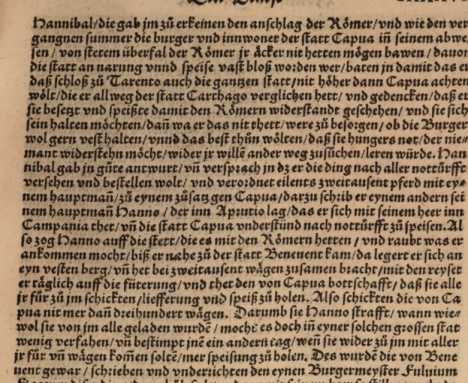 Hannibal/die gab jm zů erkeinen den anschlag der Römer/vnd wie den ver
gangnen summer die burger vnd innwoner der statt Capua iñ seinem abwe
sen/ von sterem überfal der Römer jr äcker nit hetten mögen bawen/ dauon
die statt an narung vnnd speise vast bloß worden wer/baten jn damit das er
daß schloß zů Tarento auch die gantzen statt/nit höher dann Capua achten
wölt/die er allweg der statt Carthago verglichen hett/vnd gedencken/daß er
sie besetzt vnd speißte damit den Römern widerstandt geschehen/vnd sie sich
sein halten möchten/dañ wa er das nit thett/were zů besorgen/ob die Burger
wol gern vest halten/vnnd das best thůn wölten/daß sie hungers not/der nie
mant widerstehn möcht/wider jr willē ander weg zusůchen/leren würde. Han
nibal gab jn gůte antwurt/vñ versprach jn dz er die ding nach aller notturfft
versehen vnd bestellen wolt/vnd verordnet eilents zweitausent pferd mit ey
nem hauptmañ/zů eynem zůsatz gen Capua/darzu schrib er eynem andern sei
nem hauptmañ Hanno/der inn Aprutio lag/das er sich mit seinem heer inn
Campania thet/vñ die statt Capua vnderstünd nach notturfft zů speisen. Al
so zog Hanno auff die stett/die es mit den Römern hetten/vnd raubt was er
ankommen mocht/biß er nahe zů der statt Benenent kam/da legert er sich an
eyn vesten berg/vñ het bei zweitausent wägen zusamen bracht/mit den reyset
er täglich auff die fůterung/vnd thet den von Capua bottschafft/daß sie alle
jr für zů jm schickten/liefferung vnd speiß zů holen. Also schickten die von Ca
pua nit mer dañ dreihundert wägen. Darumb sie Hanno strafft/wann wie
wol sie von jm alle geladen wurdē/mocht es doch iñ eyner solchen grossen stat
wenig verfahen/vñ bestimpt jnē ein andern tag/weñ sie wider zů jm mit aller
jr für vñ wägen kom̃en soltē/mer speisung zů holen. Des wurdē die von Bene
uent gewar/schrieben vnd vnderichten den eynen Burgermeyster Fuluium